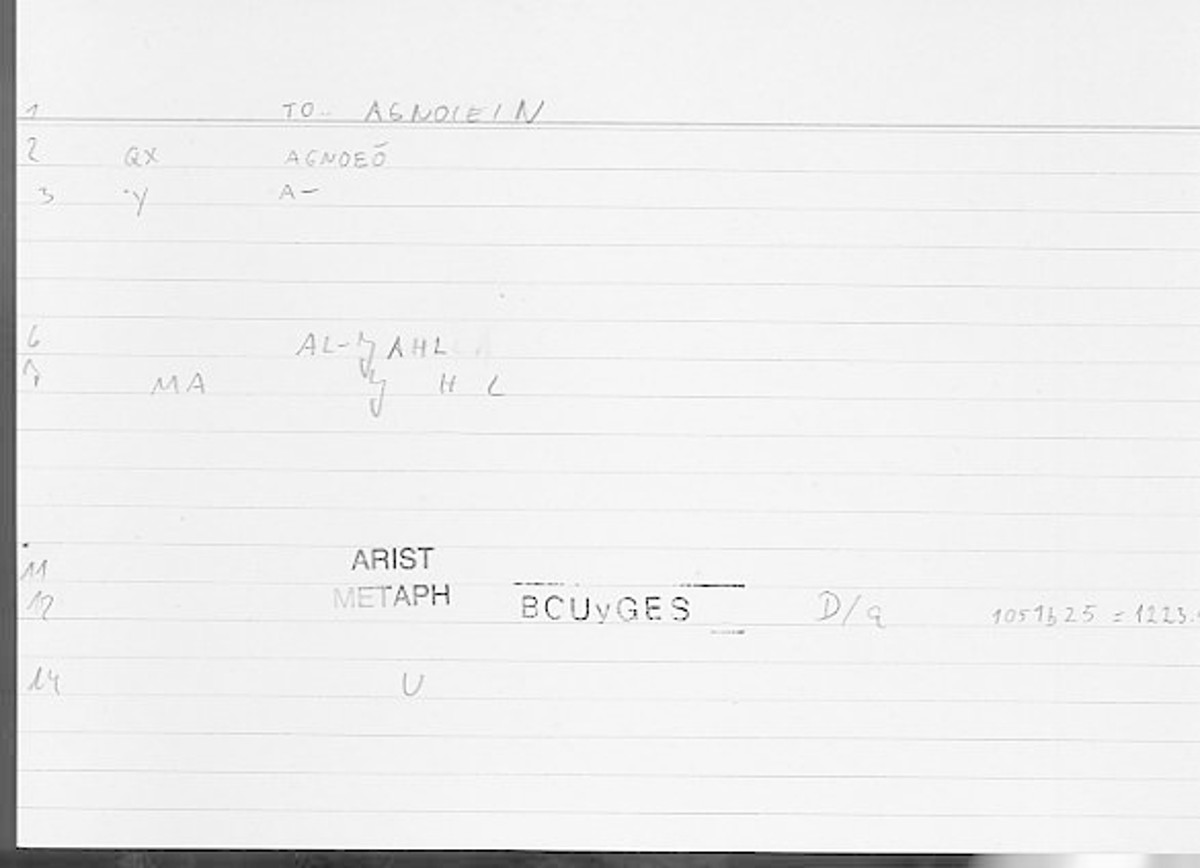 1 TO.. AGNOIEIN
2 QX AGNOEŌ
3 Y A-
6 AL- AHL
7 MA H L
11 ARIST
12 METAPH BCUyGES D/q 1051b25 = 1223.
14 U